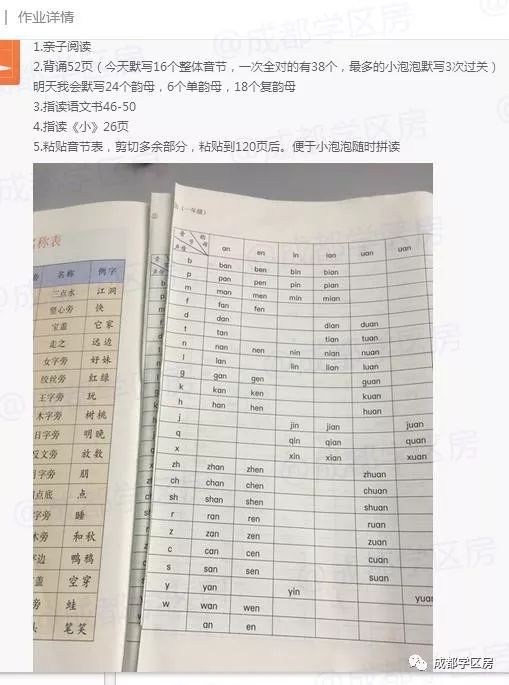 作业详情
@成都学区房
1.亲子阅读
2.背诵52页（今天默写16个整体音节，一次全对的有38个，最多的小泡泡默写3次过关）
明天我会默写24个韵母，6个单韵母，18个复韵母
3.指读语文书46-50
4.指读《小》26页
5.粘贴音节表，剪切多余部分，粘贴到120页后。便于小泡泡随时拼读
称表
名称 例字
三点水 江洞
竖心旁 快
宝盖 它家
走之 远边
女字旁 好妹
绞丝旁 红绿
王字旁 玩
木字旁 树桃
日字旁 明晚
反文旁 放数
月字旁 朋
四点底 点
字旁 睡
木旁 和秋
字边 鸭鸦
盖 空穿
旁 蛙
头 笔笑
（一年级）
音节 韵母 声母 an en in ian uan
b ban ben bin bian
p pan pen pin pian
m man men min mian
f fan fen
d dan dian duan
t tan tian tuan
n nan nen nin nian nuan
l lan lin lian luan
g gan gen guan
k kan ken kuan
h han hen huan
j jin jian juan
q qin qian quan
x xin xian xuan
zh zhan zhen zhuan
ch chan chen chuan
sh shan shen shuan
r ran ren ruan
z zan zen zuan
c can cen cuan
s san sen suan
y yan yin yuan
w wan wen
an en
成都学区房